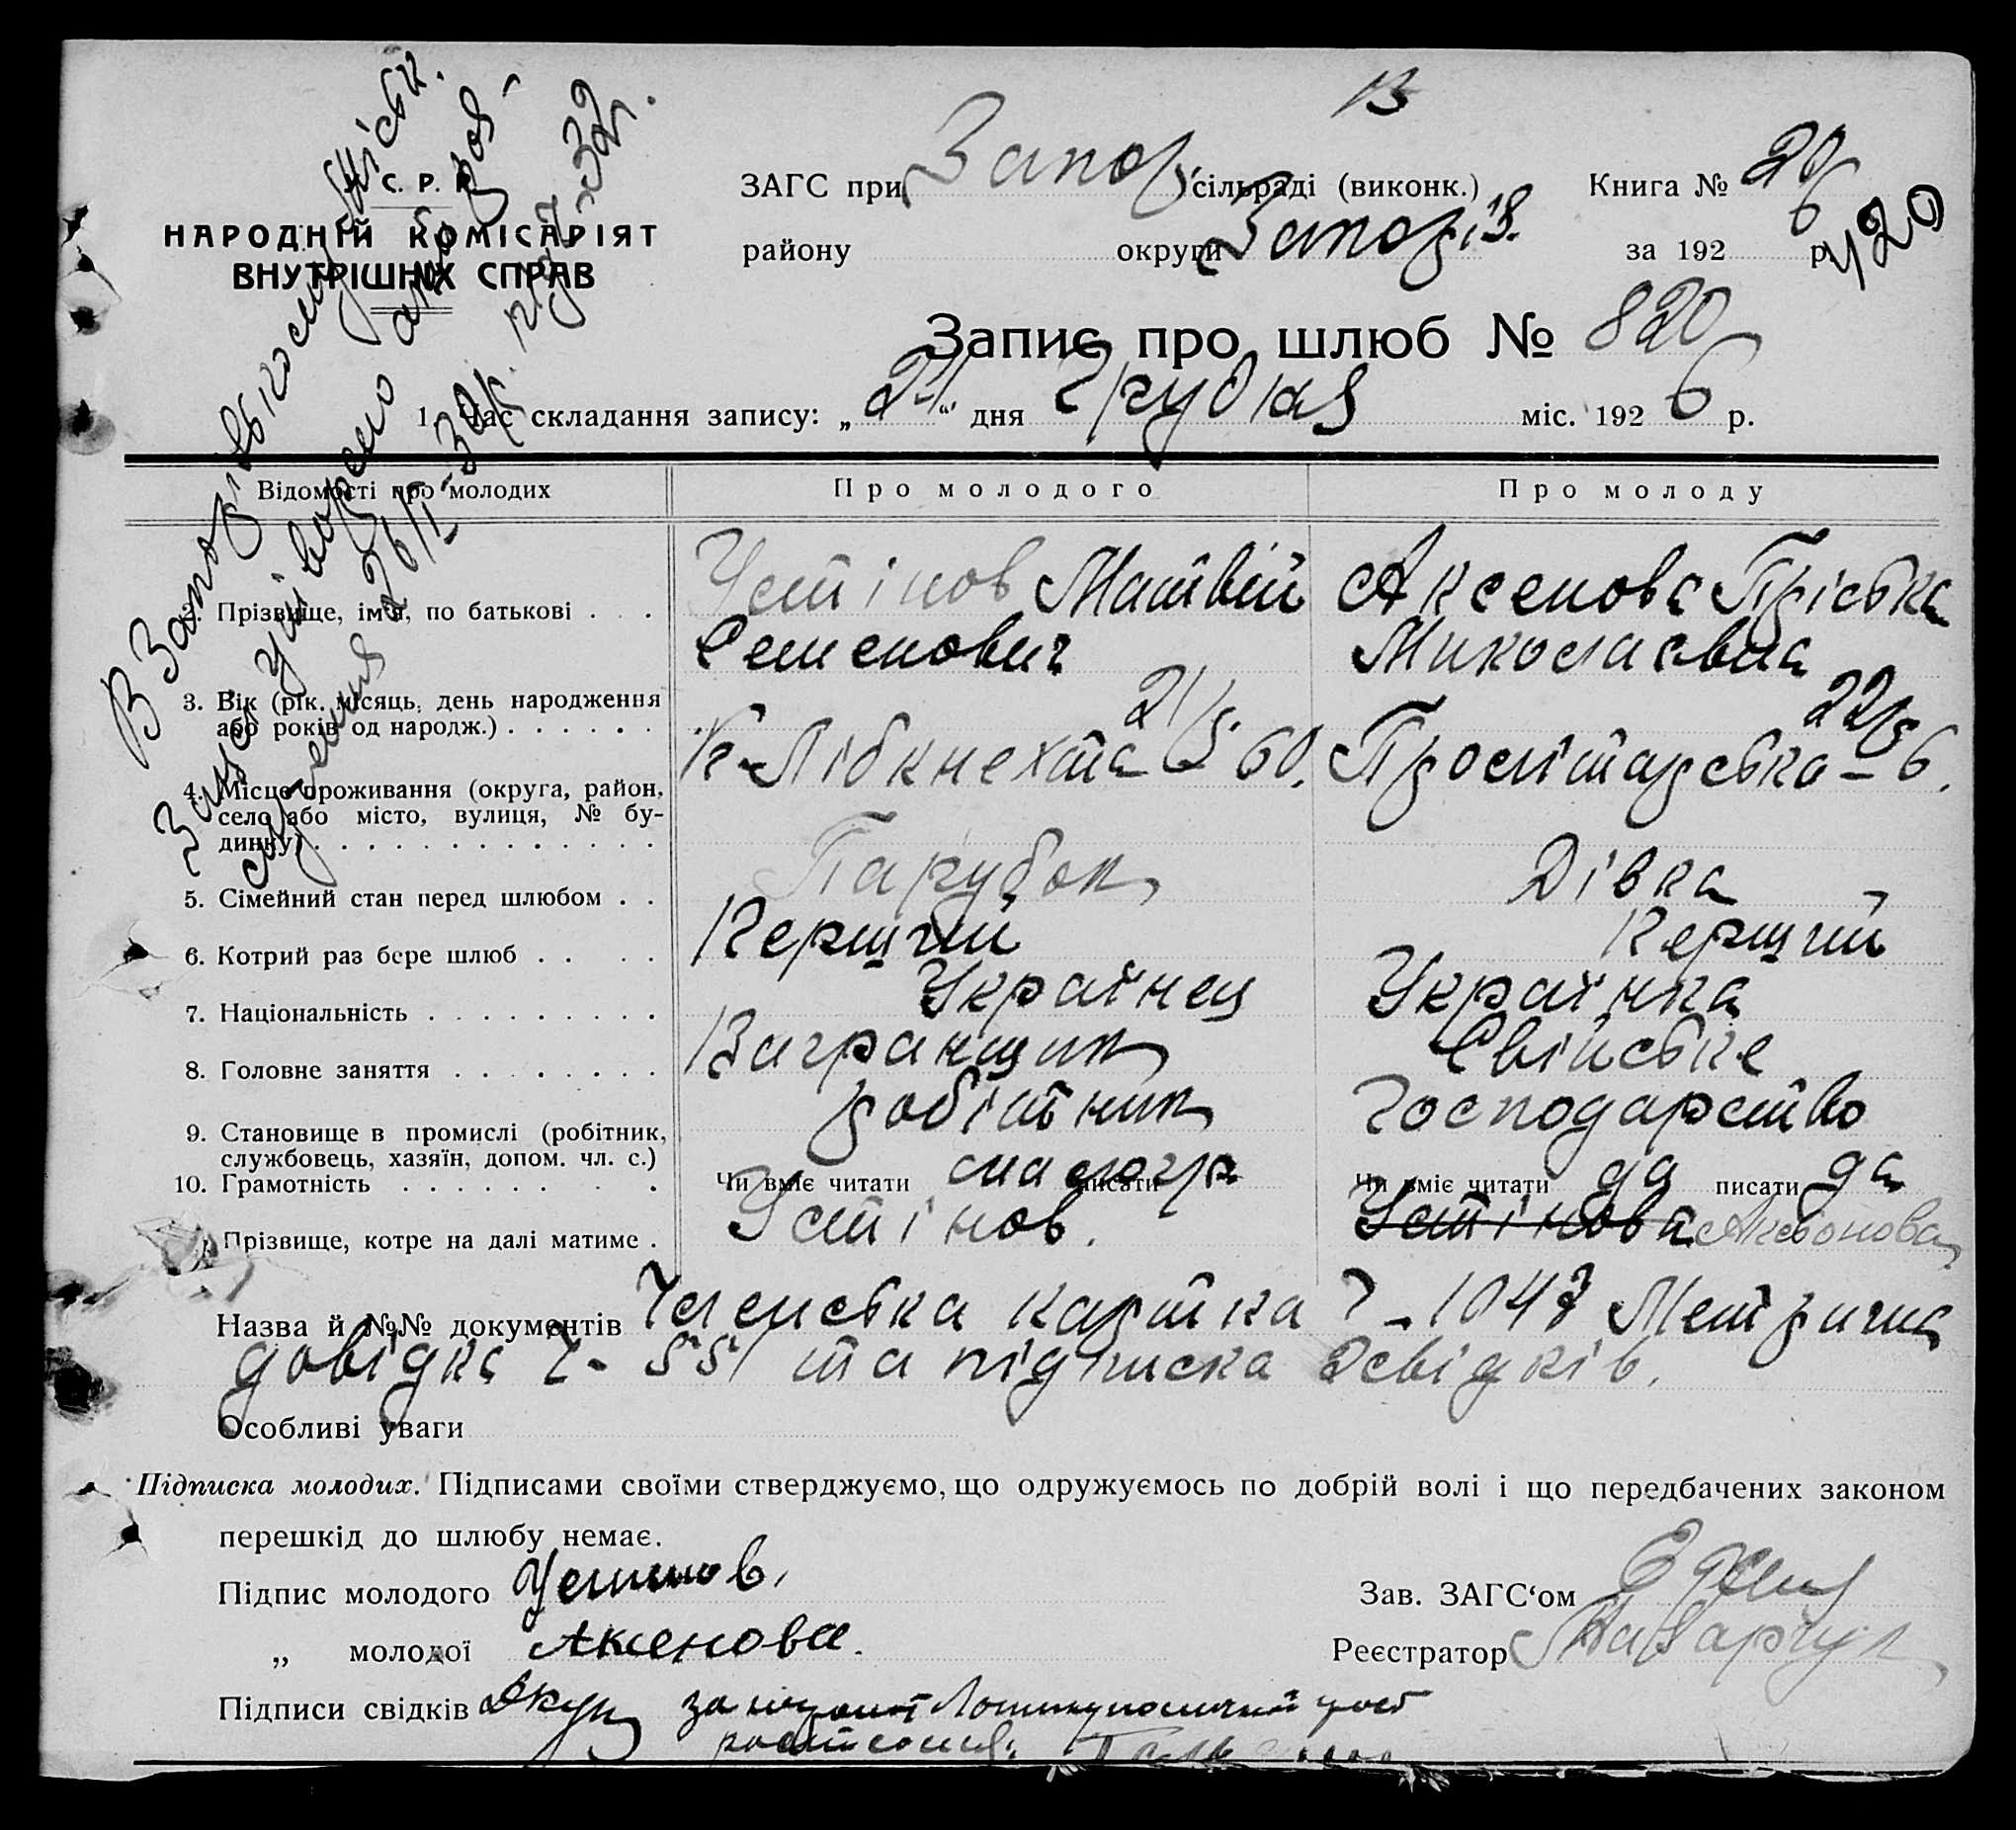 13
С. Р. Р.
НАРОДНІЙ КОМІСАРІЯТ
ВНУТРІШНІХ СПРАВ
ЗАГС при Запоріз. сільраді (виконк.) Книга № 20
району округи Запоріз. за 1926 р.
420
Запис про шлюб № 820
1. Час складання запису: „24“ дня Грудня міс. 1926 р.
В Запорізькому міськ.
Загсі утворено
26/I-32р.
Відомості про молодих Про молодого Про молоду
2. Прізвище, ім'я, по батькові . . . Устінов Матвій Аксенова Пріська
Семенович Миколаєвна
3. Вік (рік, місяць, день народження 21/5 22/5
або років од народж.) . . . . . .
К-Лібкнехта 60. Пролітарська – 6.
4. Місце проживання (округа, район,
село або місто, вулиця, № бу-
динку) . . . . . . . . . . . . . .
5. Сімейний стан перед шлюбом . . Парубок Дівка
6. Котрий раз бере шлюб . . . . Перший Перший
7. Національність . . . . . . . . . Українец Українка
8. Головне заняття . . . . . . . . Вагранщик Свійське
9. Становище в промислі (робітник, робітник Господарство
службовець, хазяїн, допом. чл. с.)
10. Грамотність . . . . . . . Чи вміє читати малогр писати Чи вміє читати да писати да
Прізвище, котре на далі матиме . Устінов. Устінова Аксьонова
Назва й №№ документів Членська картка Ч-1047 Метрична
довідка Ч- 551 та підписка свідків.
Особливі уваги
Підписка молодих. Підписами своїми стверджуємо, що одружуємось по добрій волі і що передбачених законом
перешкід до шлюбу немає.
Підпис молодого Устинов,
Зав. ЗАГС‘ом
„ молодої Аксенова.
Реєстратор
Підписи свідків